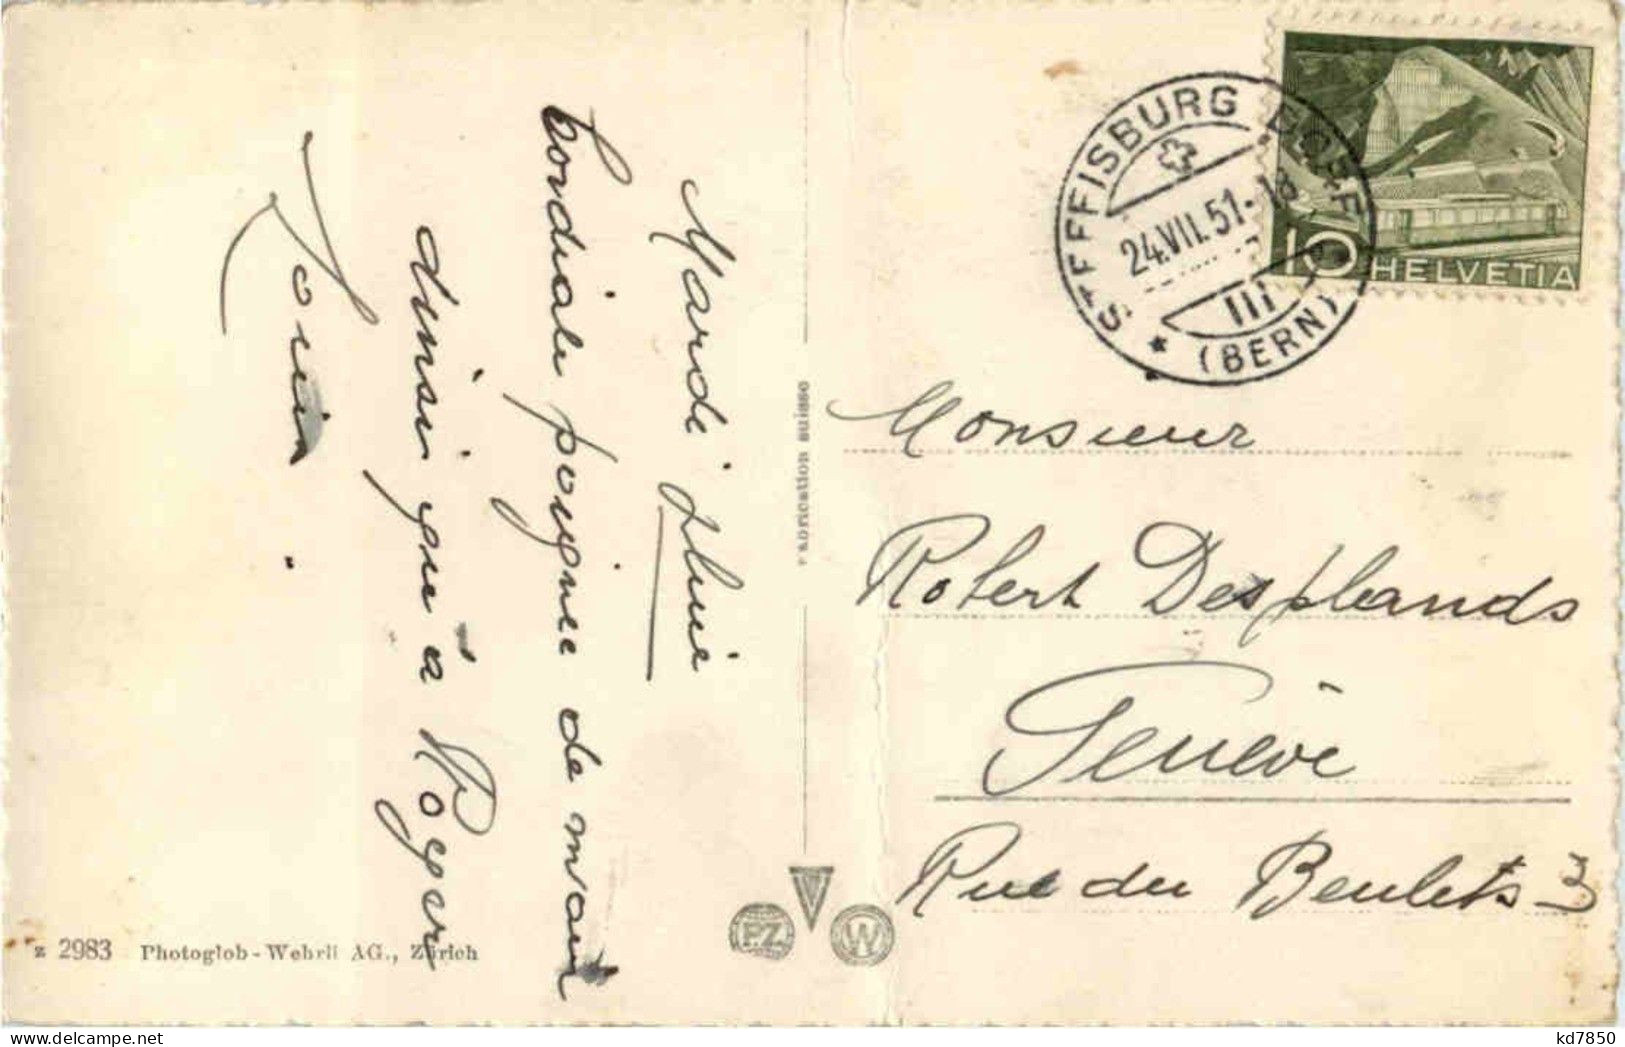 Mardi pluie
Cordiale poignée de main
ainsi qu'à Roger
Louis.
z 2983 Photoglob-Wehrli AG., Zürich
Fabrication suisse
P.Z.
W
STEFFISBURG DORF
24.VII.51.-18
III
(BERN)
10 HELVETIA
Monsieur
Robert Desplands
Genève
Rue du Beulet
kd7850